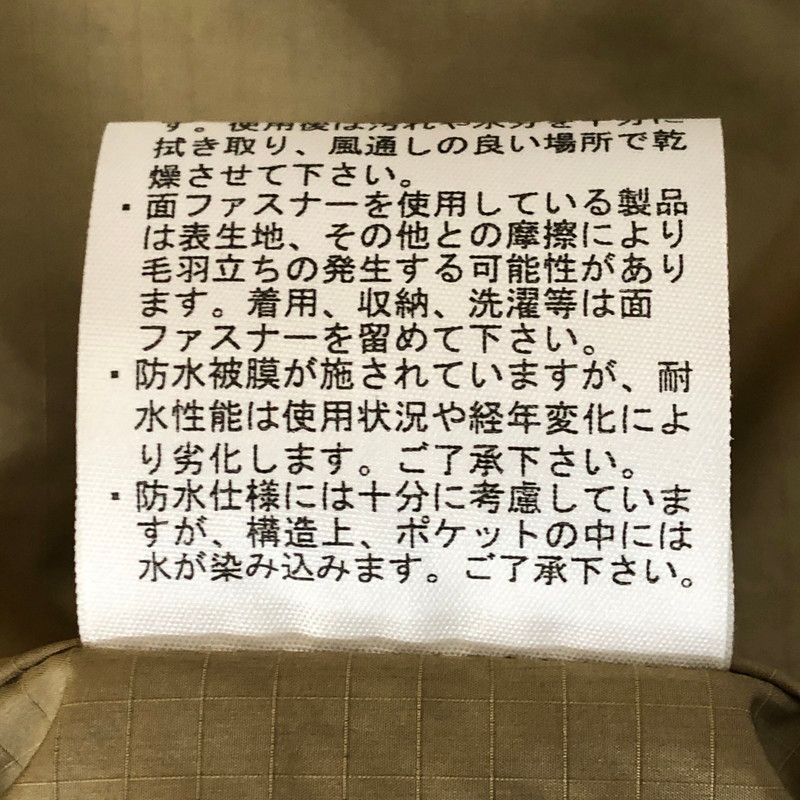 す。使用後は汚れや水分を十分に
拭き取り、風通しの良い場所で乾
燥させて下さい。
・面ファスナーを使用している製品
は表生地、その他との摩擦により
毛羽立ちの発生する可能性があり
ます。着用、収納、洗濯等は面
ファスナーを留めて下さい。
・防水被膜が施されていますが、耐
水性能は使用状況や経年変化によ
り劣化します。ご了承下さい。
・防水仕様には十分に考慮していま
すが、構造上、ポケットの中には
水が染み込みます。ご了承下さい。